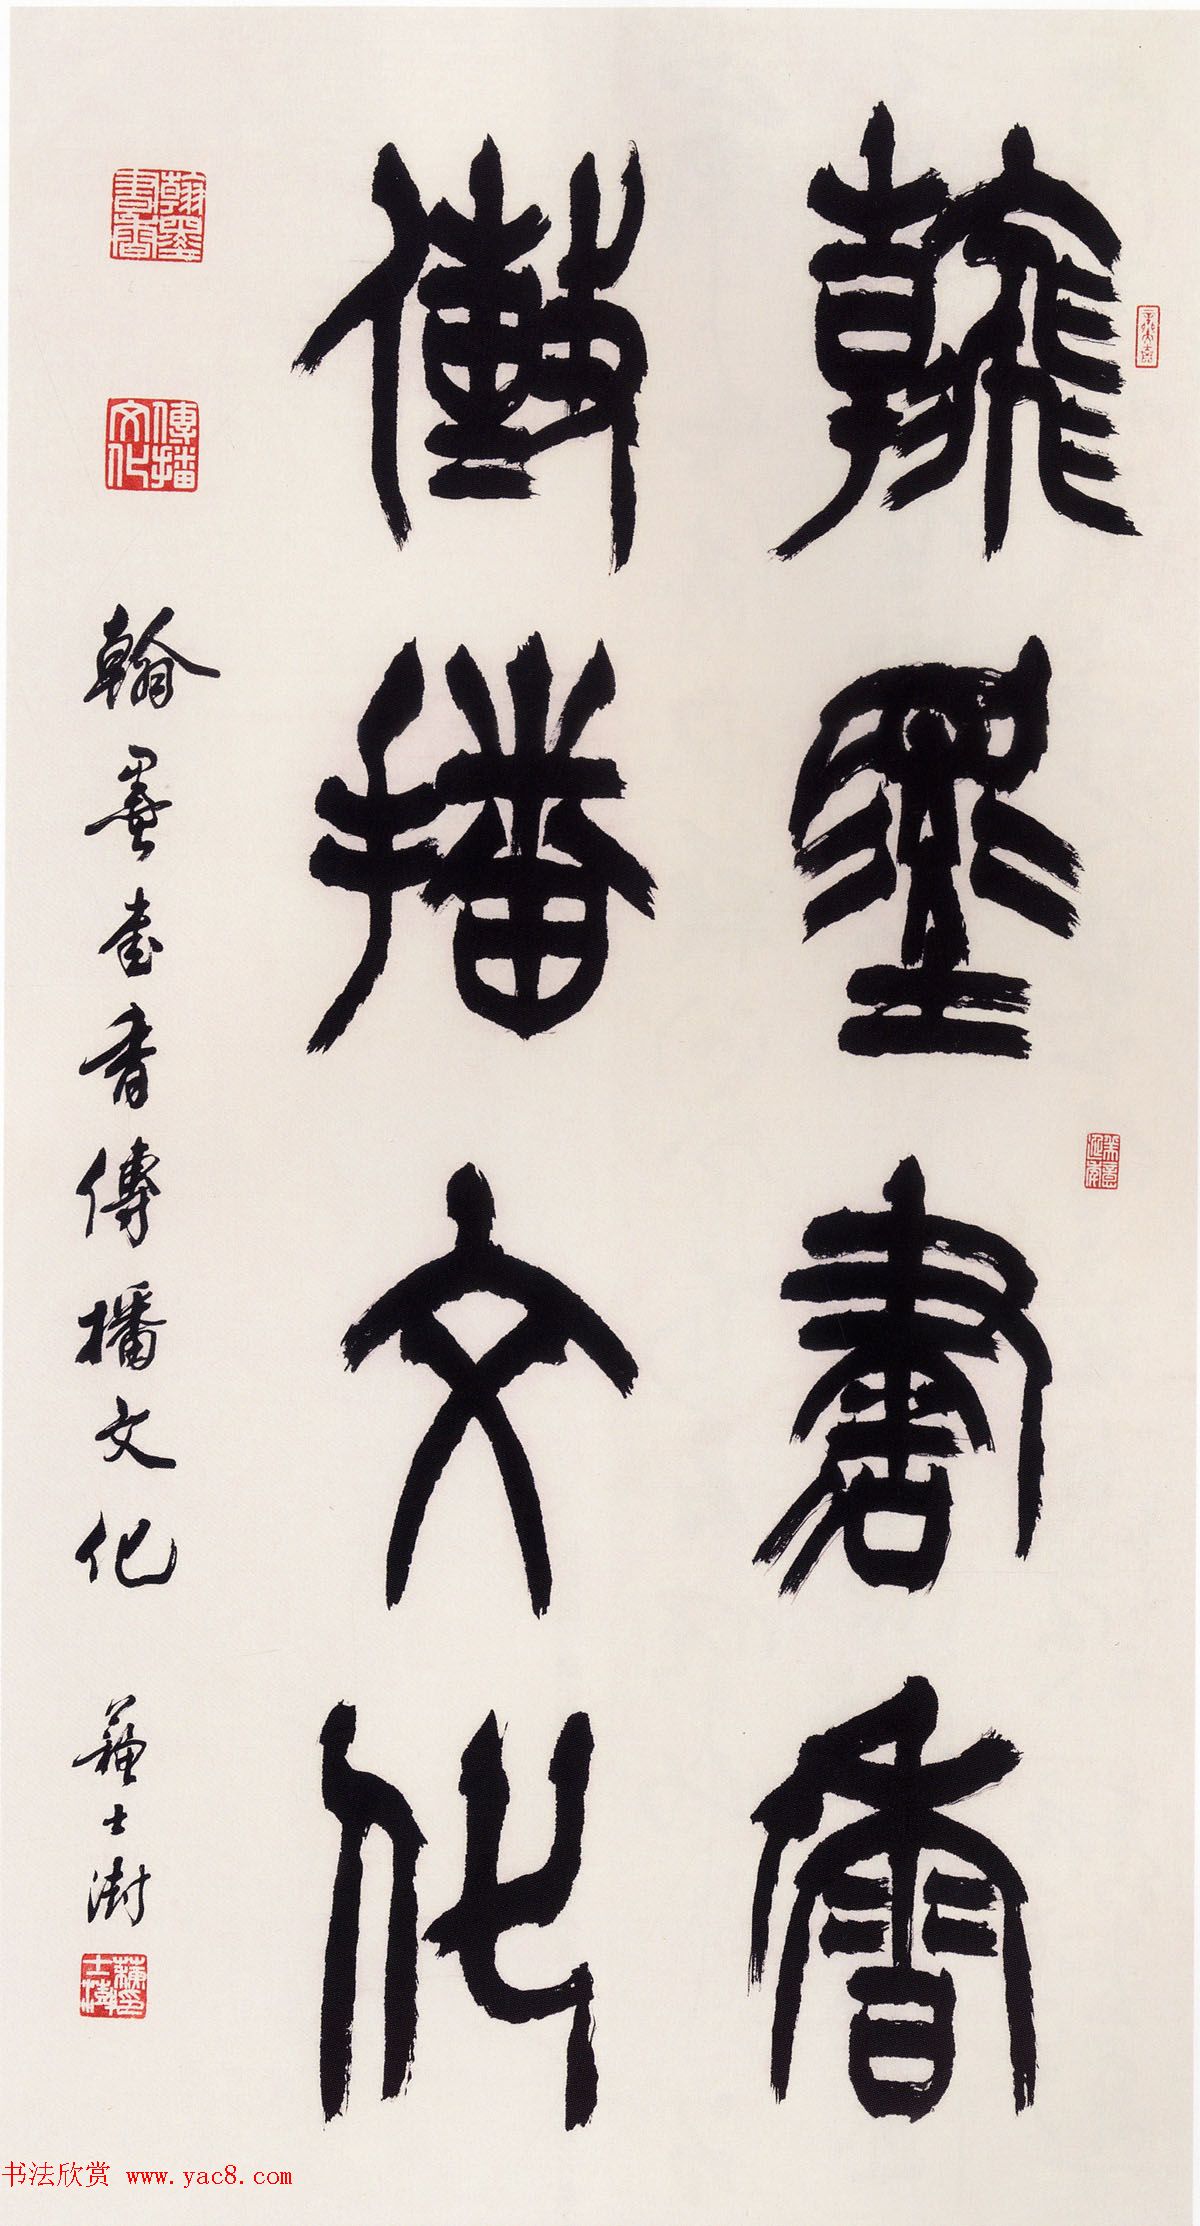 翰墨書香
傳播文化
翰墨書香傳播文化 蘇士澍
翰墨書香
傳播文化
蘇士澍印
书法欣赏 www.yac8.com